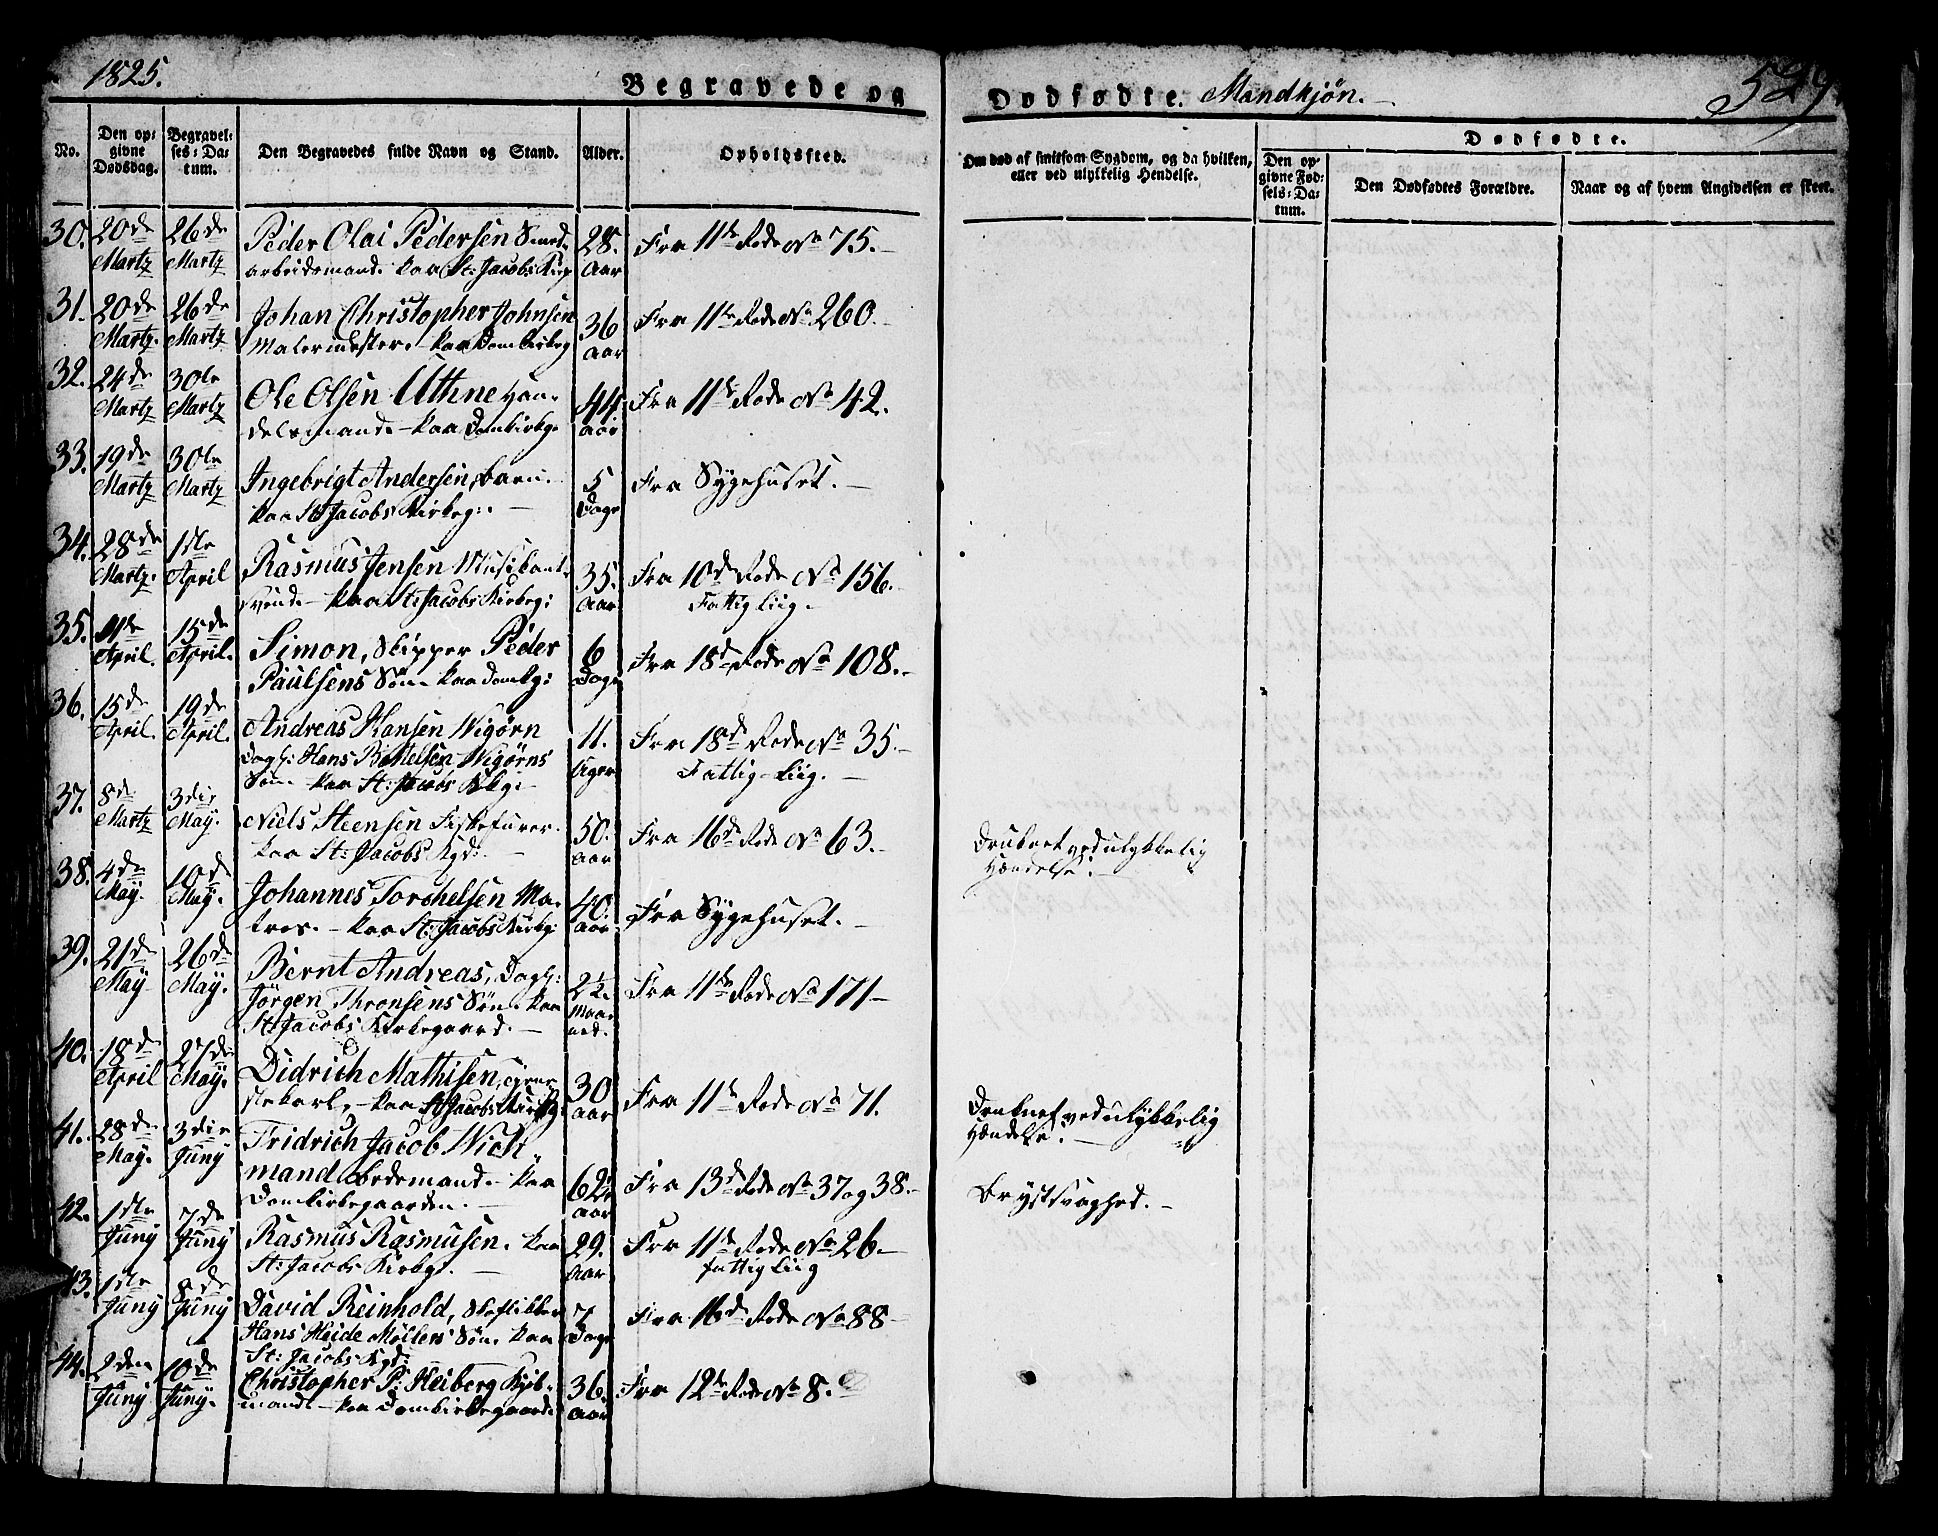 1825.
Begravede og
Dødfødte. Mandkjøn.
529.
No.
Den op=
givne
Dødsdag.
Begravel=
ses=Da=
tum.
Den Begravedes fulde Navn og Stand.
Alder.
Opholdssted.
Om død af smitsom Sygdom, og da hvilken,
eller ved ulykkelig Hendelse.
Dødfødte.
Den op
givne Fød=
sels=Da=
tum.
Den Dødfødtes Forældre.
Naar og af hvem Angivelsen er skeet.
30. 20de 26de Peder Olai Pedersen Smed= 28. Fra 11te Rode No 75.
Martz Martz arbeidsmand. paa St: Jacobs Kirg Aar
31. 20de 26de Johan Christopher Johnsen 36 Fra 11te Rode No 260.
Martz. Martz Malermester. - paa Domkirkeg Aar
32. 24de 30te Ole Olsen Uthne Han= 44. Fra 11te Rode No 42.
Martz Martz delsmand. - paa Domkirkg. Aar
33. 19de 30te Ingebrigt Andersen, barn. 5 Fra Sygehuset.
Martz Martz paa St Jacobs Kirkeg: Dage
34. 28de 1ste Rasmus Jensen Musikant= 35. Fra 10de Rode No 156.
Martz. April svend. - paa St: Jacobs Kirkeg: Aar Fattig Liig.
35. 11te 15de Simon, Skipper Peder 6 Fra 18de Rode No 108.
April. April. Paulsens Søn. paa Domkg: Dage
36. 15de 19de Andreas Hansen Wigørn 11. Fra 18de Rode No 35.
April. April. Dagl: Hans Bottelsen Wigørns Uger Fattig-Liig.
Søn. paa St: Jacobs Kkg:
37. 8de 3die Niels Steensen Fiskefører. 50. Fra 16de Rode No 63. Druknet ved ulykkelig
Martz May. paa St: Jacobs Kgd: Aar Hændelse.
38. 4de 10de Johannes Torchelsen Ma= 40. Fra Sygehuset.
May. May. tros. - paa St: Jacobs Kirkg: Aar
39. 21de 26de Bernt Andreas, Dagl: 2½ Fra 11te Rode No 171
May May. Jørgen Thronsens Søn. paa Maa=
St: Jacobs Kirkegaard. ned.
40. 18de 27de Didrich Mathisen, 30 Fra 11te Rode No 71. Druknet ved ulykkelig
April May. paa St Jacobs Kirkg: Aar Hændelse.
41. 28de 3die Fridrich Jacob Wich
May. Juny mand, bedemand. paa 62½ Fra 13de Rode No 37 og 38. Brystsvaghed.
Domkirkegaarden. Aar
42. 1ste 7de Rasmus Rasmusen. paa 29. Fra 11te Rode No 26
Juny Juny St: Jacobs Kirkg. Aar fattig Liig
43. 1ste 8de David Reinhold, Skoflikker 7 Fra 16de Rode No 88
Juny Juny Hans Heide Møllers Søn. paa Dage
St: Jacobs Kgd:
44. 2den 10de Christopher P: Heiberg Kjøb= 36. Fra 12te Rode No 8.
Juny Juny. mand. - paa Domkirkegaard. Aar